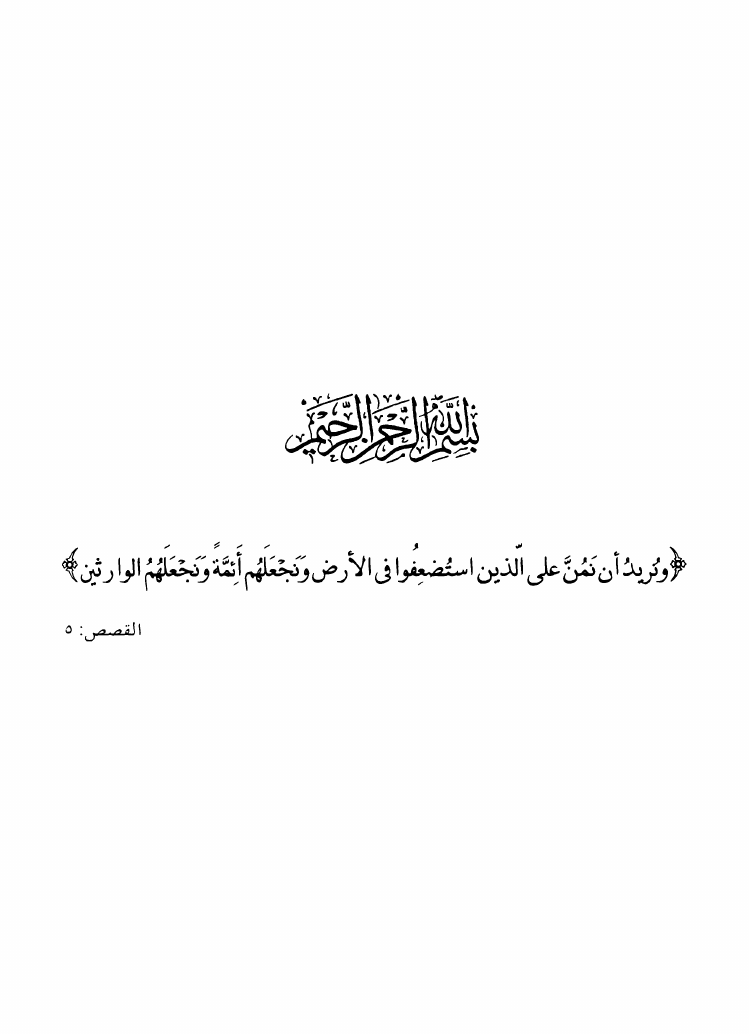 بسم الله الرحمن الرحيم
﴿ونُريدُ أن نَمُنَّ على الّذين استُضعِفُوا في الأرض وَنَجْعَلَهُم أَئِمَّةً وَنَجْعَلَهُمُ الوارثين﴾
القصص: ٥